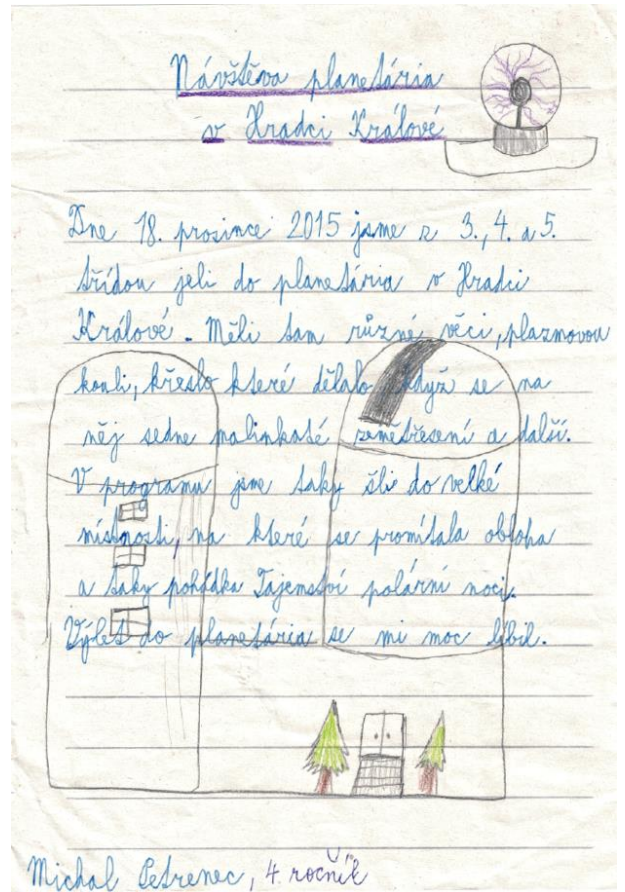 Návštěva planetária
v Hradci Králové
Dne 18. prosince 2015 jsme z 3., 4. a 5.
třídou jeli do planetária v Hradci
Králové. Měli tam různé věci, plazmovou
kouli, křeslo které dělalo když se na
něj sedne malinkaté zemětřesení a další.
V programu jsme taky šli do velké
místnosti, na které se promítala obloha
a taky pohádka Tajemství polární noci.
Výlet do planetária se mi moc líbil.
Michal Petrenec, 4. ročník